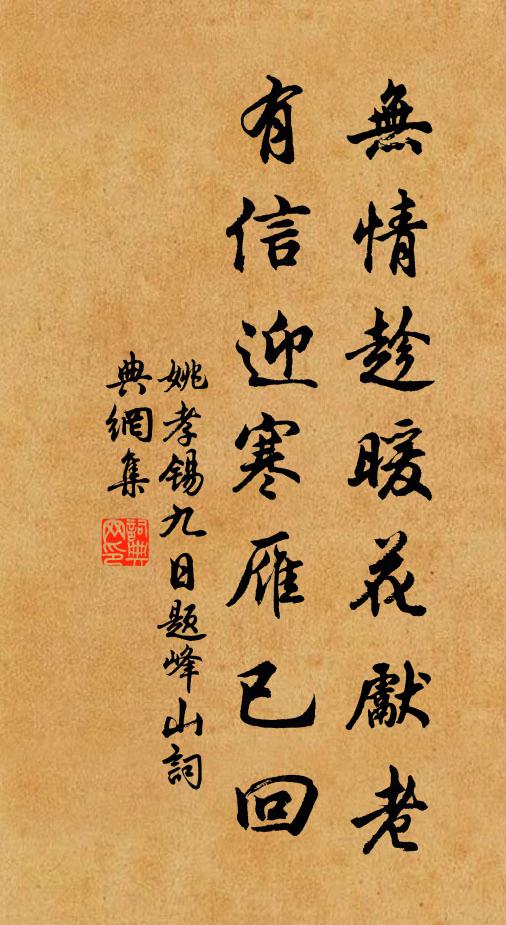 無情趁暖花獻老
有信迎寒雁已回
姚孝锡九日题峰山詞
典網集
詞典网印